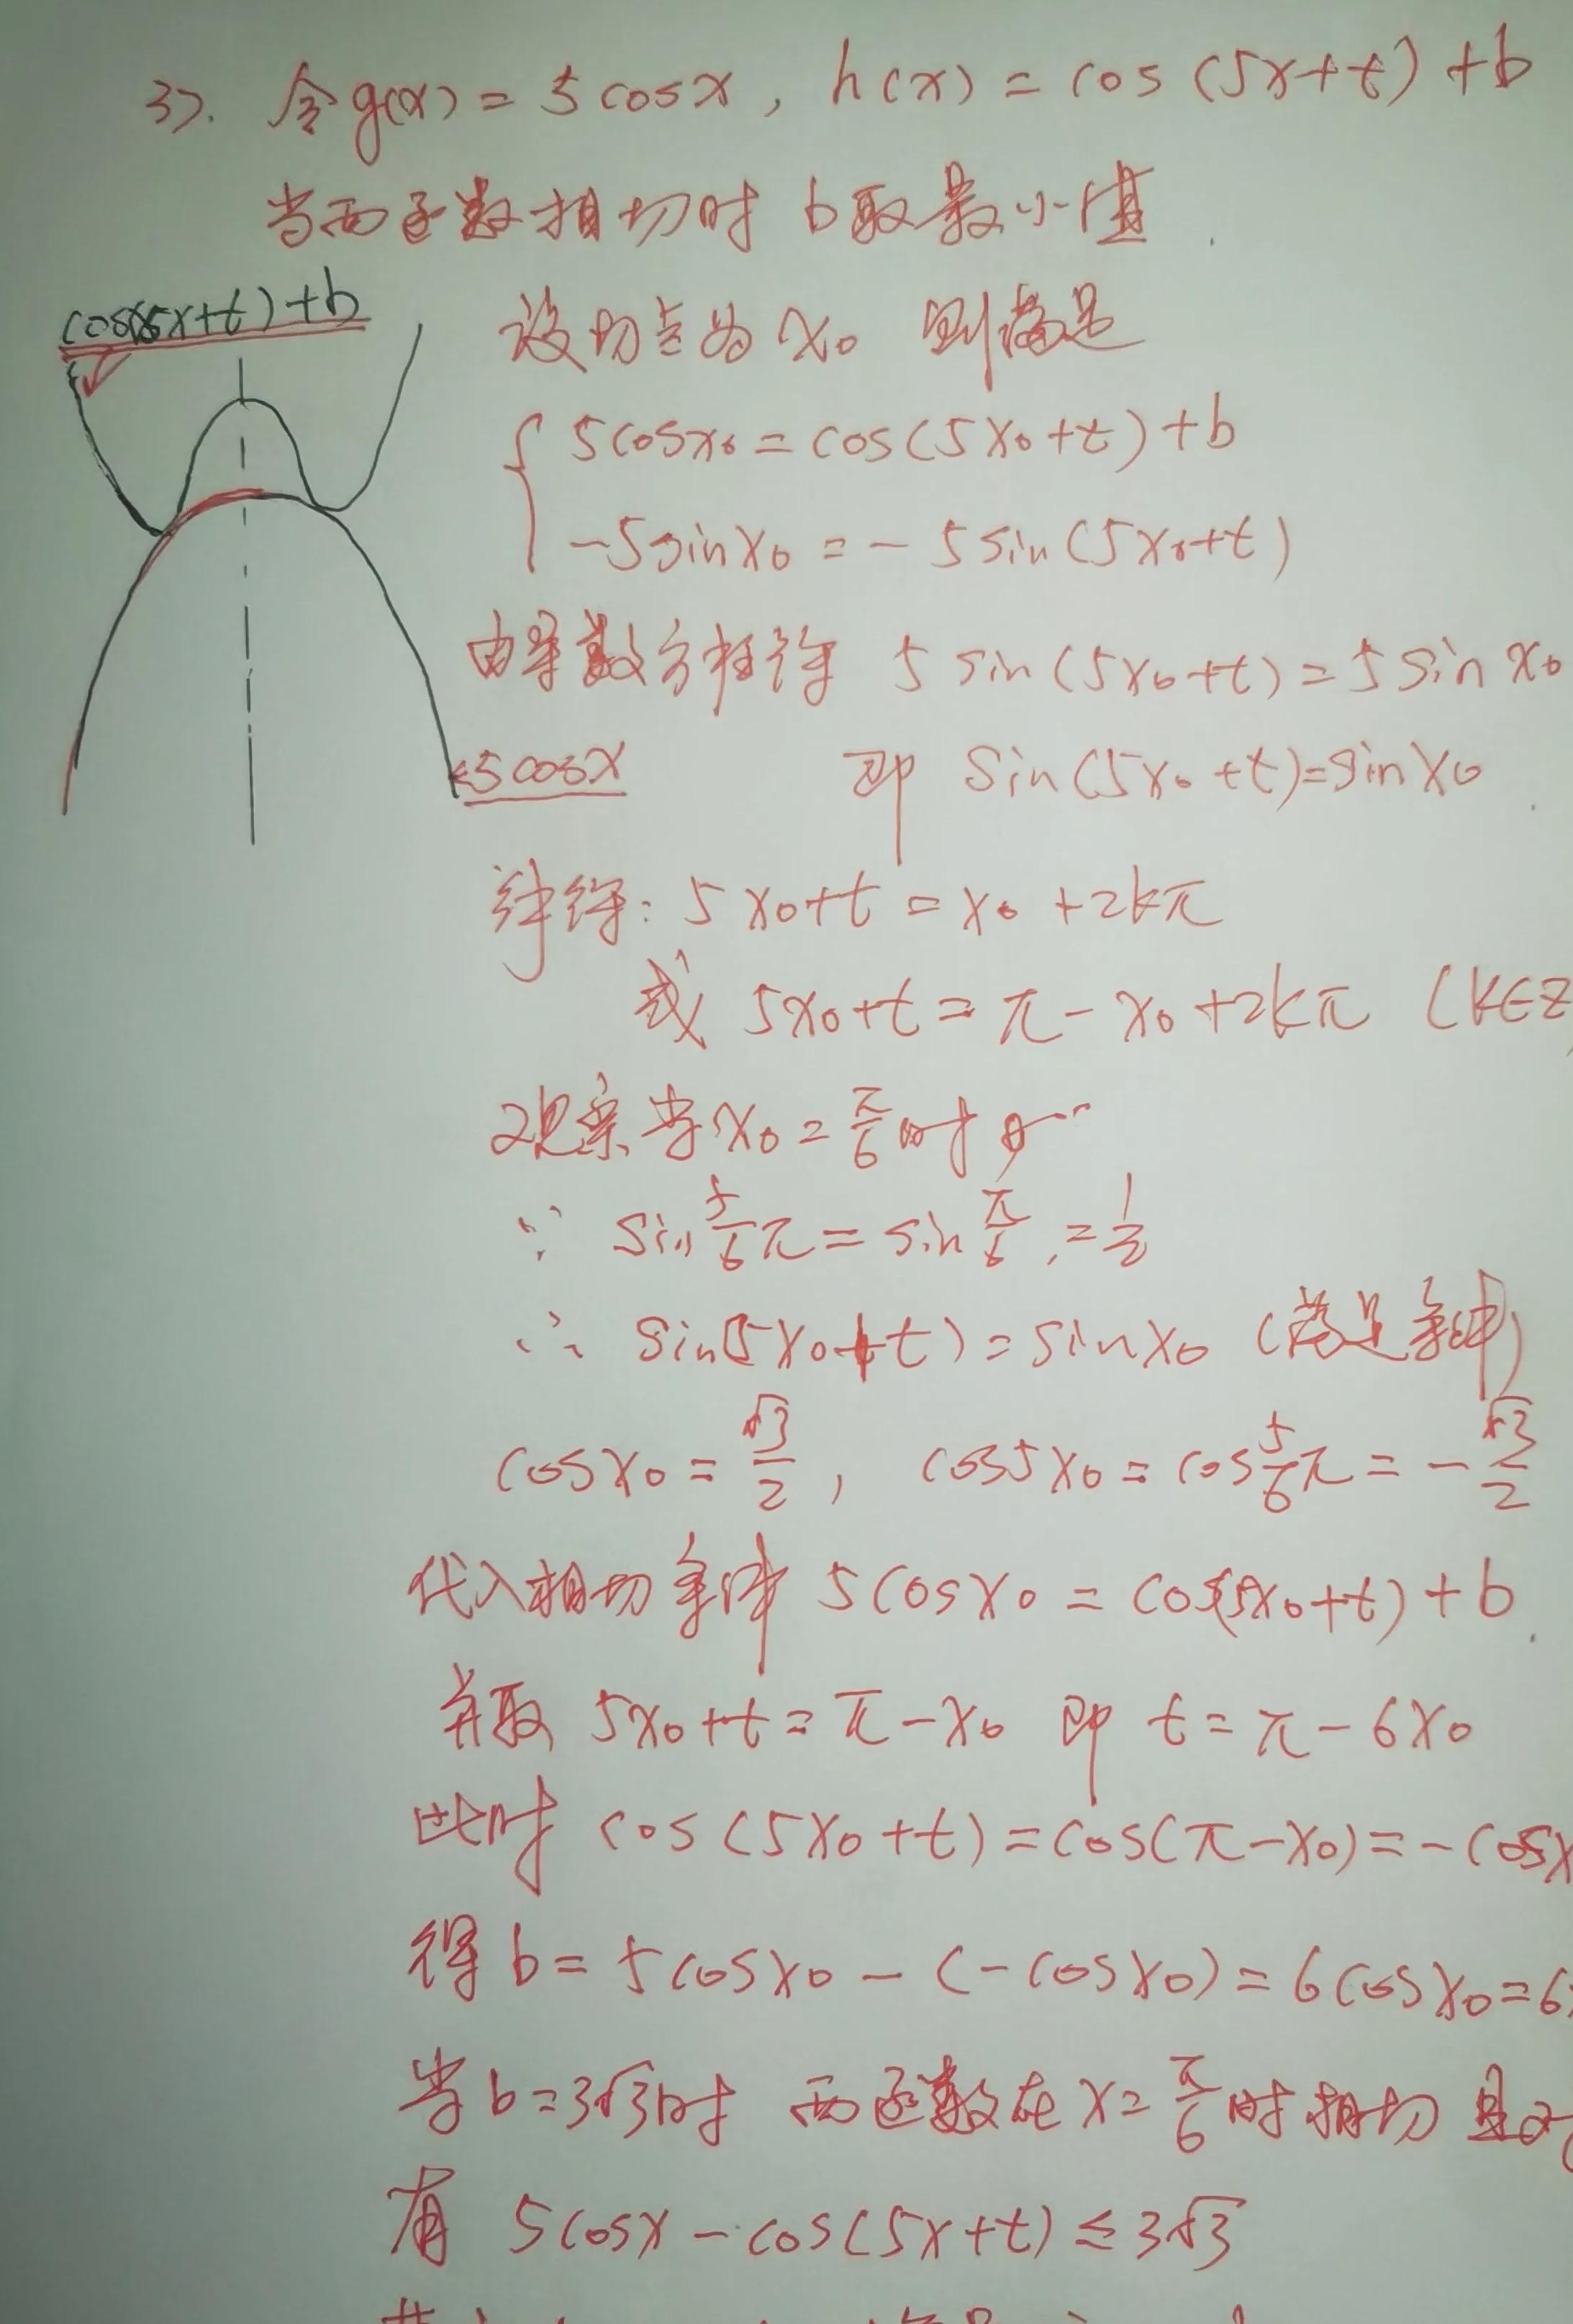 3). 令g(x) = 5cosx, h(x) = cos(5x+t)+b
当两函数相切时 b取最小值.
cos(5x+t)+b
设切点为 x₀ 则满足
{ 5cosx₀ = cos(5x₀+t)+b
-5sinx₀ = -5sin(5x₀+t)
由导数方程得 5sin(5x₀+t) = 5sinx₀
5cosx
即 sin(5x₀+t)=sinx₀.
解得: 5x₀+t = x₀+2kπ
或 5x₀+t = π-x₀+2kπ (k∈Z
观察当x₀=π/6时
∵ sin5/6π = sinπ/6 = 1/2
∴ sin(5x₀+t) = sinx₀ (满足条件)
cosx₀ = √3/2, cos5x₀ = cos5/6π = -√3/2
代入相切条件 5cosx₀ = cos(5x₀+t)+b.
并取 5x₀+t = π-x₀ 即 t = π-6x₀
此时 cos(5x₀+t) = cos(π-x₀) = -cosx
得 b = 5cosx₀-(-cosx₀) = 6cosx₀ = 6
当b=3√3时 两函数在x=π/6时相切 且
有 5cosx-cos(5x+t) ≤ 3√3